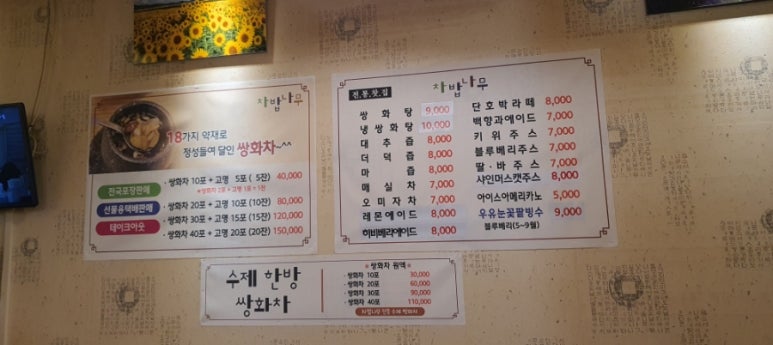 차밥나무
18가지 약재로
정성들여 달인 쌍화차~^^
전국포장판매
선물용택배판매
테이크아웃
· 쌍화차 10포 + 고명 5포 ( 5잔) 40,000
· 쌍화차 20포 + 고명 10포 (10잔) 80,000
· 쌍화차 30포 + 고명 15포 (15잔) 120,000
· 쌍화차 40포 + 고명 20포 (20잔) 150,000
전.통.찻.집
차밥나무
쌍화탕 9,000
냉쌍화탕 10,000
대추즙 8,000
더덕즙 8,000
마즙 8,000
매실차 7,000
오미자차 7,000
레몬에이드 8,000
히비베라에이드 8,000
단호박라떼 8,000
백향과에이드 7,000
키위주스 7,000
블루베리주스 7,000
딸·바주스 7,000
샤인머스캣주스 8,000
아이스아메리카노 5,000
우유눈꽃팥빙수 9,000
블루베리(5~9월)
수제 한방
쌍화차
※쌍화차 원액※
· 쌍화차 10포 30,000
· 쌍화차 20포 60,000
· 쌍화차 30포 90,000
· 쌍화차 40포 110,000